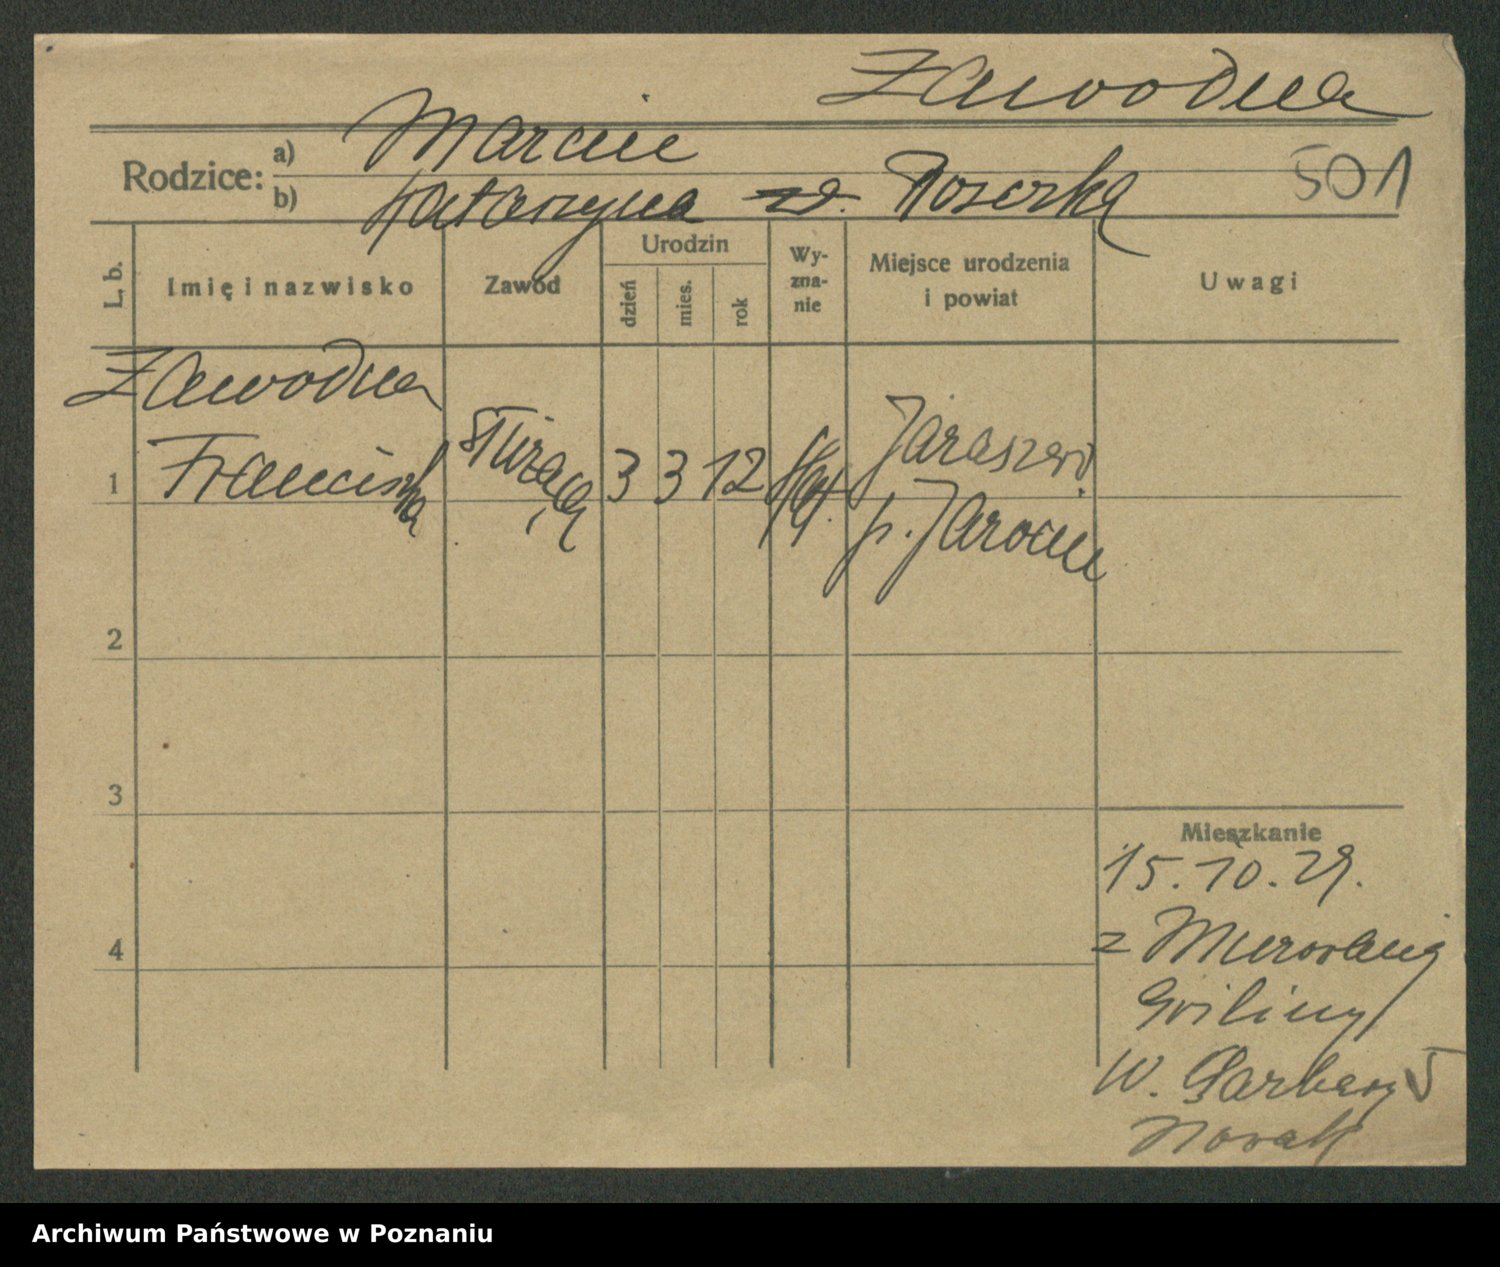 Zawodna
Rodzice: a) Marcin
b) Katarzyna zd. Roszczka 501
L. b. Imię i nazwisko Zawód Urodzin dzień mies. rok Wy-zna-nie Miejsce urodzenia i powiat Uwagi
Zawodna
1 Franciszka służąca 3 3 12 kat. Jaraszewo
p. Jarocin
2
3
Mieszkanie
15.10.29.
4 z Murowanej
Gośliny
W. Garbary 5
Nowak
Archiwum Państwowe w Poznaniu